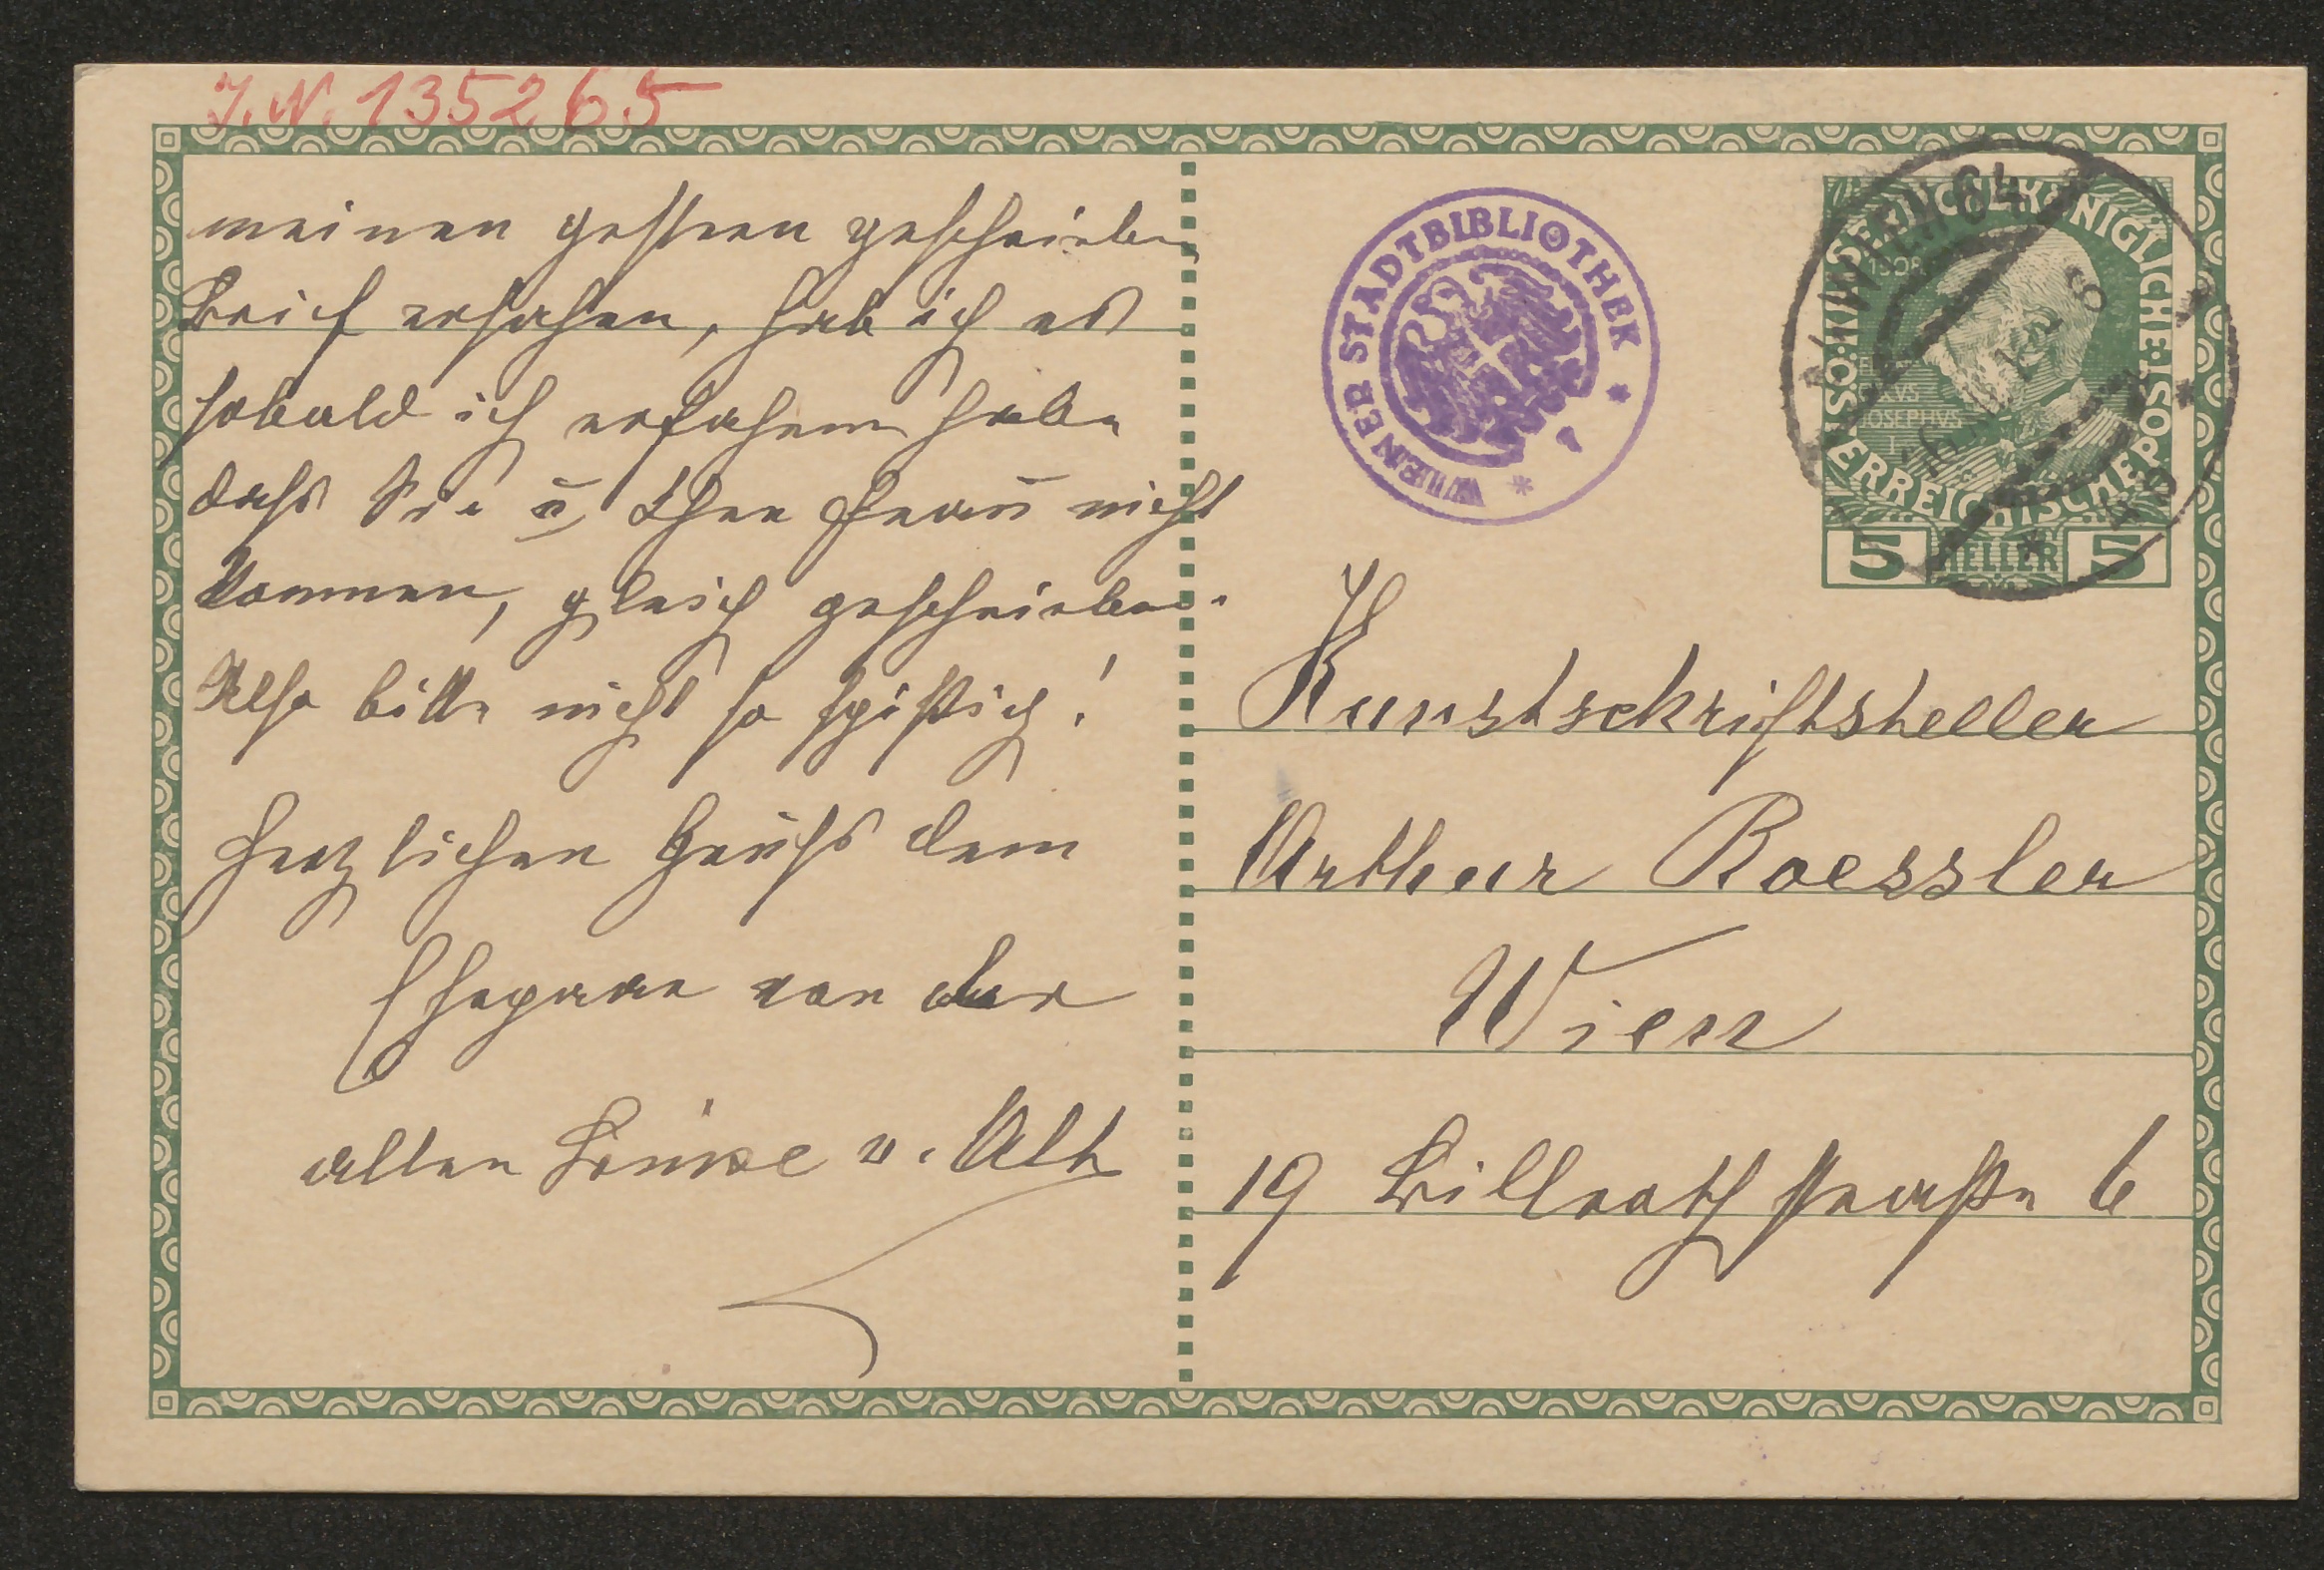 J.N. 135265
meinen gestern geschrieben
Brief ersehen, hab ich es
sobald ich erfahren habe
dass Sie u Ihre Frau nicht
kommen, gleich geschrieben.
Also bitte nicht so spitzig!
Herzlichen Gruss dem
Ehepaar von der
alten Louise v. Alt
WIENER STADTBIBLIOTHEK
KAISERLICHE KÖNIGLICHE
ÖSTERREICHISCHE POST
1908
JOSEPHVS
5 HELLER 5
WIEN 64
Kunstschriftsteller
Arthur Roessler
Wien
19 Billrothstraße 6